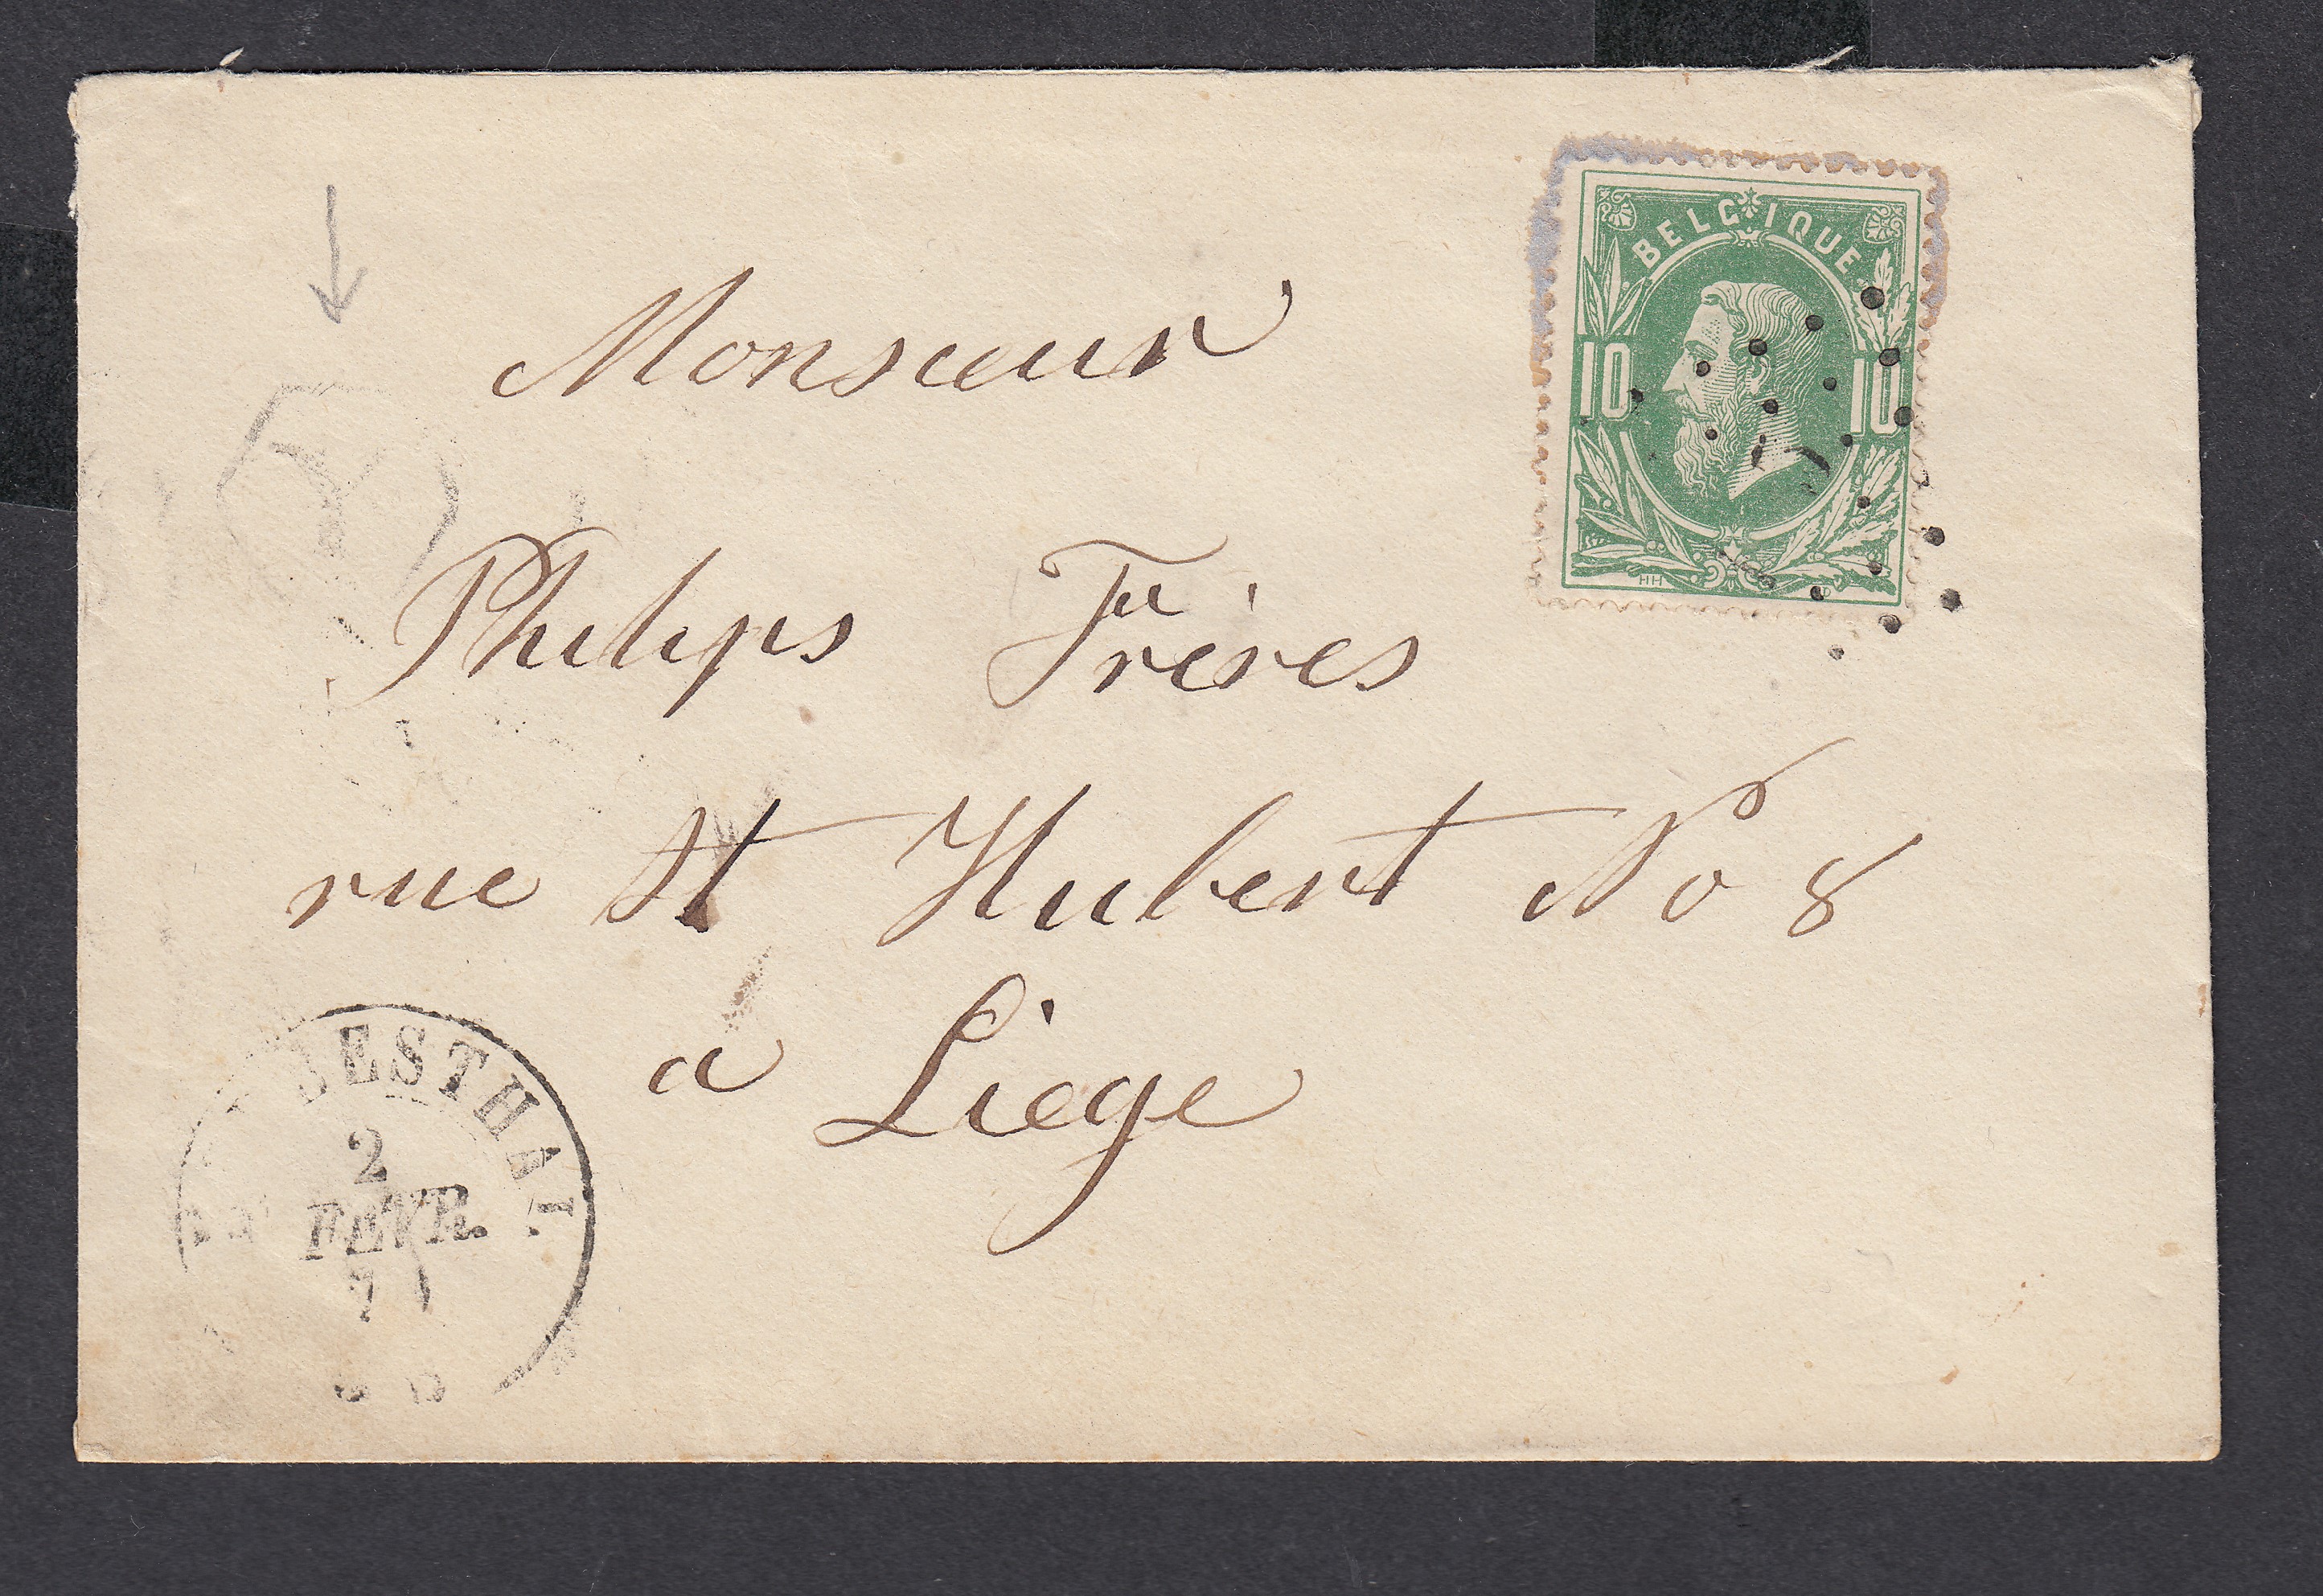 BELGIQUE
10 10
Monsieur
Philips Frères
rue St Hubert No 8
à Liège
2
FEVR.